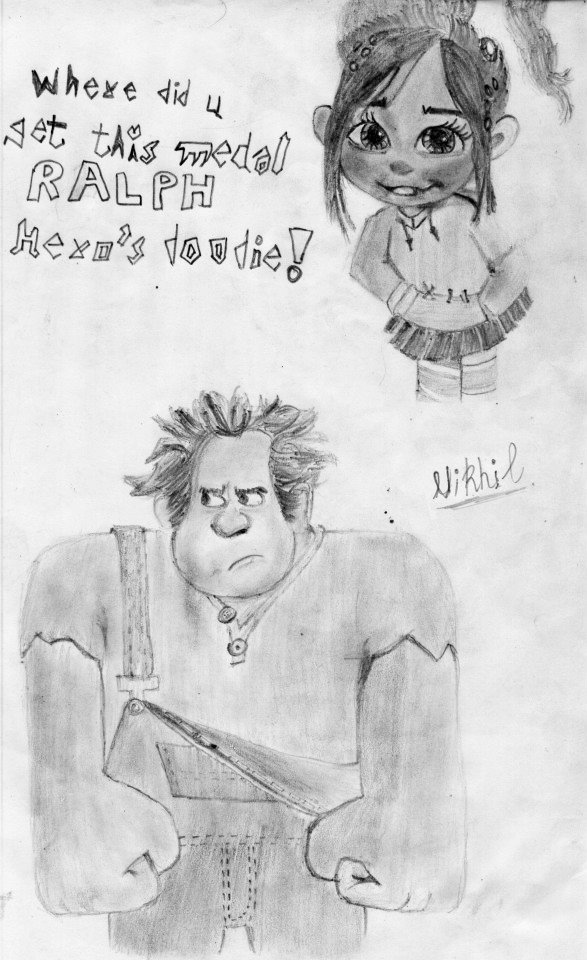 Where did u
get this medal
RALPH
Hero's doodie!
Nikhil